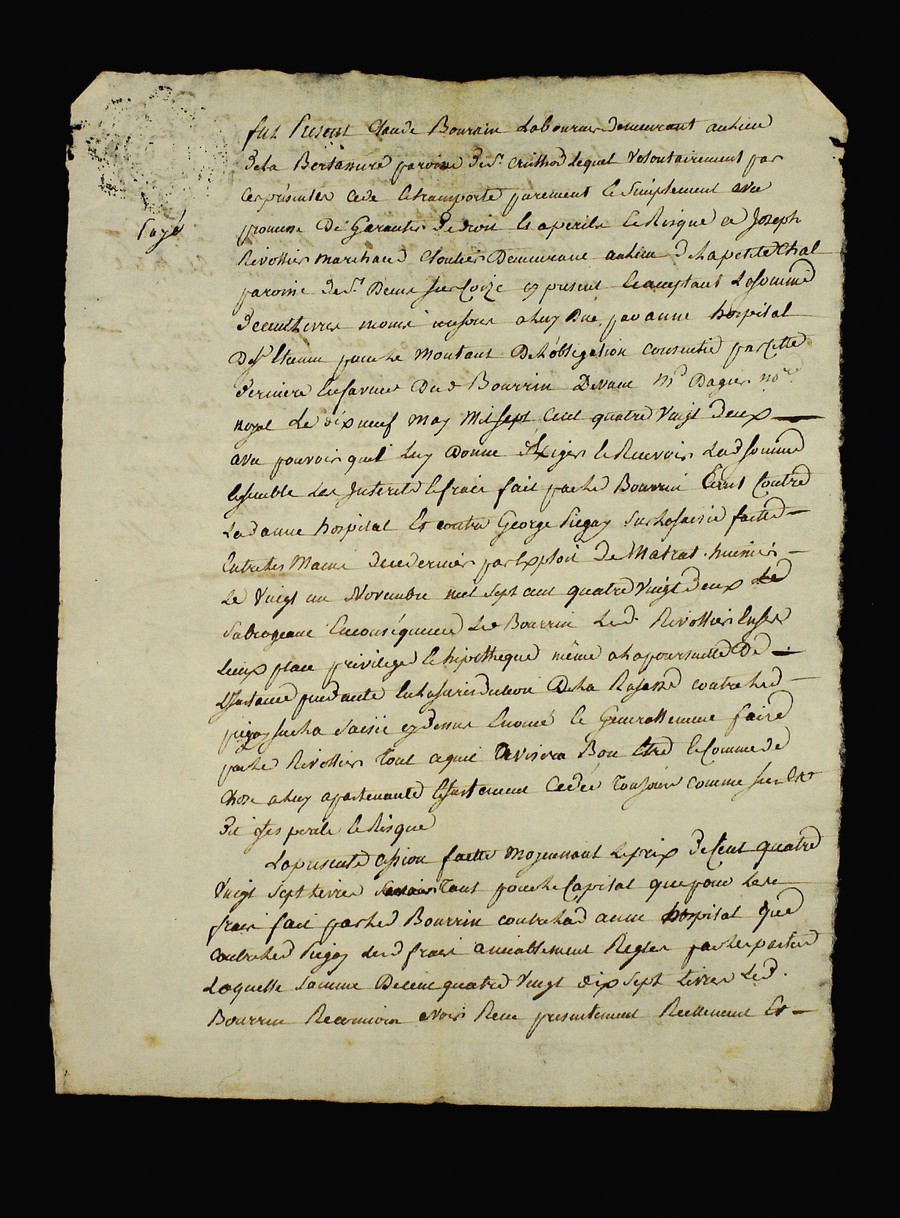 fut Present Claude Bourrin Laboureur demeurant au lieu
de la Bertannire paroisse de St. Cristhod lequel volontairement par
ces présentes cede et transporte purement et simplement avec
payé
promesse de Garantir de droit et a perils et Risque a Joseph
Rivollier marchand Cloutier Demeurant au lieu de la petite Chal
paroisse de St. Denis sur Coize cy present et acceptant La somme
de cent livres moins a luy Due par anne hospital
De St. Etienne pour le montant De Lobligation consentie par cette
derniere En faveur Dud Bourrin Devant Me. Dagier nore.
royal Le dix neuf May Mil sept Cent quatre Vingt deux
avec pouvoir quil Luy Donne dExiger et Recevoir Lad somme
Ensemble Les Interets et frais fait par led Bourrin tant Contre
Lad anne hospital Et contre George Piegay sur la saisie faitte
Entre les Mains de ce dernier par Exploit de Matrat huissier
Le Vingt un Novembre mil sept cent quatre Vingt deux
Subrogeant En conséquence Led Bourrin Led. Rivollier En ses
Lieux place privilege et hipotheque même a la poursuitte De
L'Instance pendante En la jurisdiction De la contre led
piegay sur la saisie cy dessus Enoncé et Generallement faire
par led Rivollier tout ce quil avisera Bon Etre et Comme de
Chose a luy apartenante et justement Cedée Toujours comme sus Est
dit a ses perils et Risque
La presente cession faitte Moyennant Le prix de Cent quatre
Vingt sept livres tant pour le Capital que pour les
frais fait par led Bourrin contre lad anne hospital que
contre led Piegay lesd frais amiablement Regler par les parties
Laquelle Somme De cent quatre Vingt dix sept Livres Led.
Bourrin Reconnoit avoir Reçu presentement Reellement Et